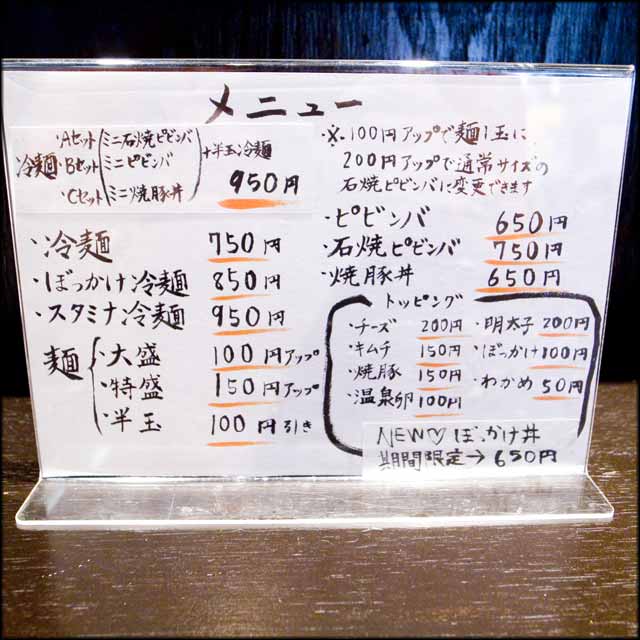 メニュー
冷麺
・Aセット(ミニ石焼ピビンバ)
・Bセット(ミニピビンバ)
・Cセット(ミニ焼豚丼)
+半玉冷麺
950円
・冷麺 750円
・ぼっかけ冷麺 850円
・スタミナ冷麺 950円
麺
・大盛 100円アップ
・特盛 150円アップ
・半玉 100円引き
※100円アップで麺1玉に
200円アップで通常サイズの
石焼ピビンバに変更できます
・ピビンバ 650円
・石焼ピビンバ 750円
・焼豚丼 650円
トッピング
・チーズ 200円
・キムチ 150円
・焼豚 150円
・温泉卵 100円
・明太子 200円
・ぼっかけ 100円
・わかめ 50円
NEW♡ぼっかけ丼
期間限定→650円